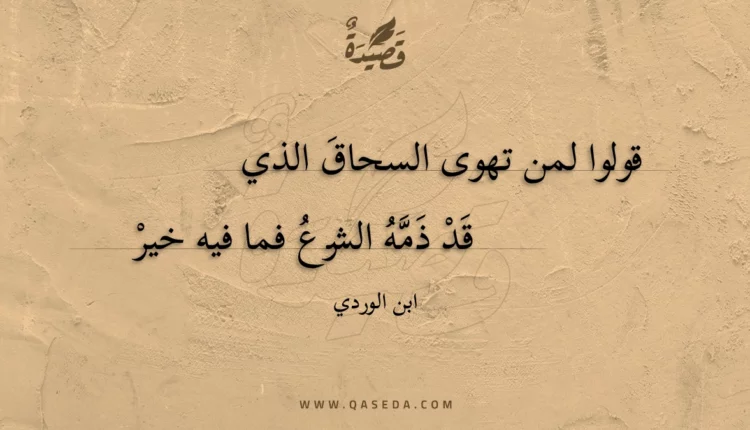 قَصِيْدَةٌ
قولوا لمن تهوى السحاقَ الذي
قَدْ ذَمَّهُ الشرعُ فما فيه خيرْ
ابن الوردي
WWW.QASEDA.COM